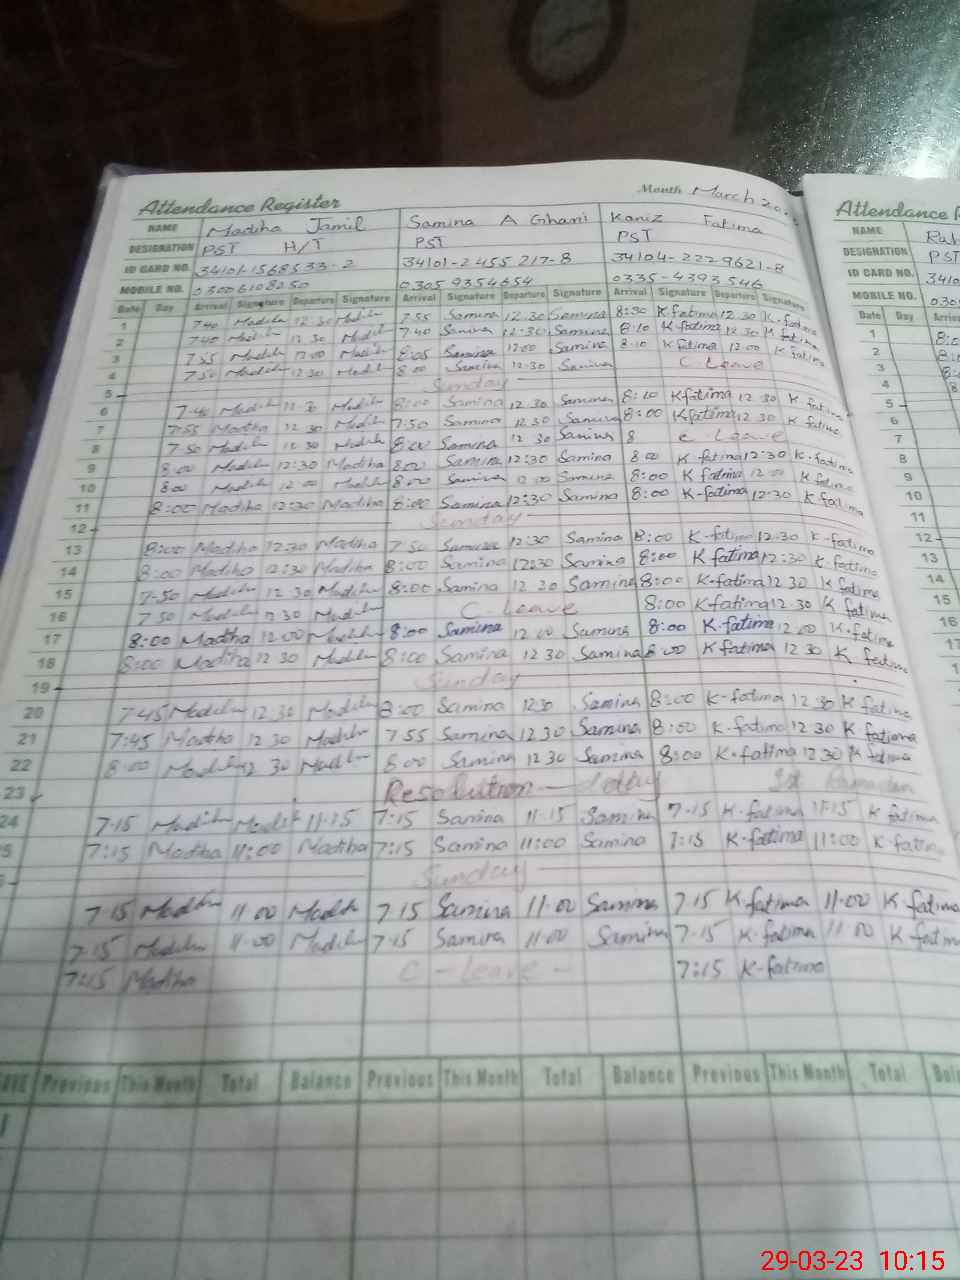 Attendance Register Month March 20
NAME Madiha Jamil Samina A Ghani Kaniz Fatima
DESIGNATION PST H/T PST PST
ID CARD NO. 34101-1568533-2 34101-2455217-8 34104-2229621-8
MOBILE NO. 03006108250 03059354654 0335-4393546
Date Day Arrival Signature Departure Signature Arrival Signature Departure Signature Arrival Signature Departure Signature
1 7:40 Madiha 12:30 Madiha 7:55 Samina 12:30 Samina 8:30 K fatima 12:30 K.fatima
2 7:40 Madiha 12 30 Madiha 7:40 Samina 12:30 Samina 8:10 K fatima 12:30 K fatima
3 7:55 Madiha 12:00 Madiha 8:05 Samina 12:00 Samina 8:10 K fatima 12:00 K fatima
4 7:50 Madiha 12:30 Madiha 8:00 Samina 12:30 Samina C Leave
5 Sunday
6 7:40 Madiha 12:30 Madiha 8:00 Samina 12:30 Samina 8:10 K fatima 12:30 K fatima
7 7:55 Madiha 12 30 Madiha 7:50 Samina 12:30 Samina 8:00 K fatima 12:30 K fatima
8 7:50 Madiha 12 30 Madiha 8:00 Samina 12 30 Samina 8 C Leave
9 8:00 Madiha 12:30 Madiha 8:00 Samina 12:30 Samina 8:00 K fatima 12:30 K.fatima
10 8:00 Madiha 12 00 Madiha 8:00 Samina 12:00 Samina 8:00 K fatima 12:00 K fatima
11 8:00 Madiha 12:30 Madiha 8:00 Samina 12:30 Samina 8:00 K-fatima 12:30 K fatima
12 Sunday
13 8:00 Madiha 12:30 Madiha 7:50 Samina 12:30 Samina 8:00 K-fatima 12:30 K-fatima
14 8:00 Madiha 12:30 Madiha 8:00 Samina 12:30 Samina 8:00 K fatima 12:30 K.fatima
15 7-50 Madiha 12 30 Madiha 8:00 Samina 12 30 Samina 8:00 K-fatima 12 30 K fatima
16 7 50 Madiha 12 30 Madiha C-Leave 8:00 K fatima 12.30 K fatima
17 8:00 Madiha 12:00 Madiha 8:00 Samina 12 00 Samina 8:00 K.fatima 12 00 K.fatima
18 8:00 Madiha 12 30 Madiha 8:00 Samina 12 30 Samina 8 00 K fatima 12 30 K fatima
19 Sunday
20 7:45 Madiha 12:30 Madiha 8:00 Samina 12:30 Samina 8:00 K-fatima 12.30 K fatima
21 7:45 Madiha 12 30 Madiha 7 55 Samina 12 30 Samina 8:00 K-fatima 12 30 K fatima
22 8:00 Madiha 12 30 Madiha 8 00 Samina 12 30 Samina 8:00 K-fatima 12 30 K fatima
23 Resolution - day 1st Ramadan
24 7:15 Madiha Madiha 11-15 7:15 Samina 11-15 Samina 7-15 K-fatima 11:15 K fatima
5 7:15 Madiha 11:00 Madiha 7:15 Samina 11:00 Samina 7:15 K-fatima 11:00 K fatima
Sunday
7 15 Madiha 11 00 Madiha 7 15 Samina 11-00 Samina 7 15 K fatima 11-00 K fatima
7:15 Madiha 11-00 Madiha 7:15 Samina 11:00 Samina 7-15 K-fatima 11 00 K fatim
7:15 Madiha C-leave- 7:15 K-fatima
Previous This Month Total Balance Previous This Month Total Balance Previous This Month Total
Attendance
NAME
DESIGNATION PST
ID CARD NO. 3410
MOBILE NO. 030
Date Day
1
2
3
4
5
6
7
8
9
10
11
12
13
14
15
16
29-03-23 10:15